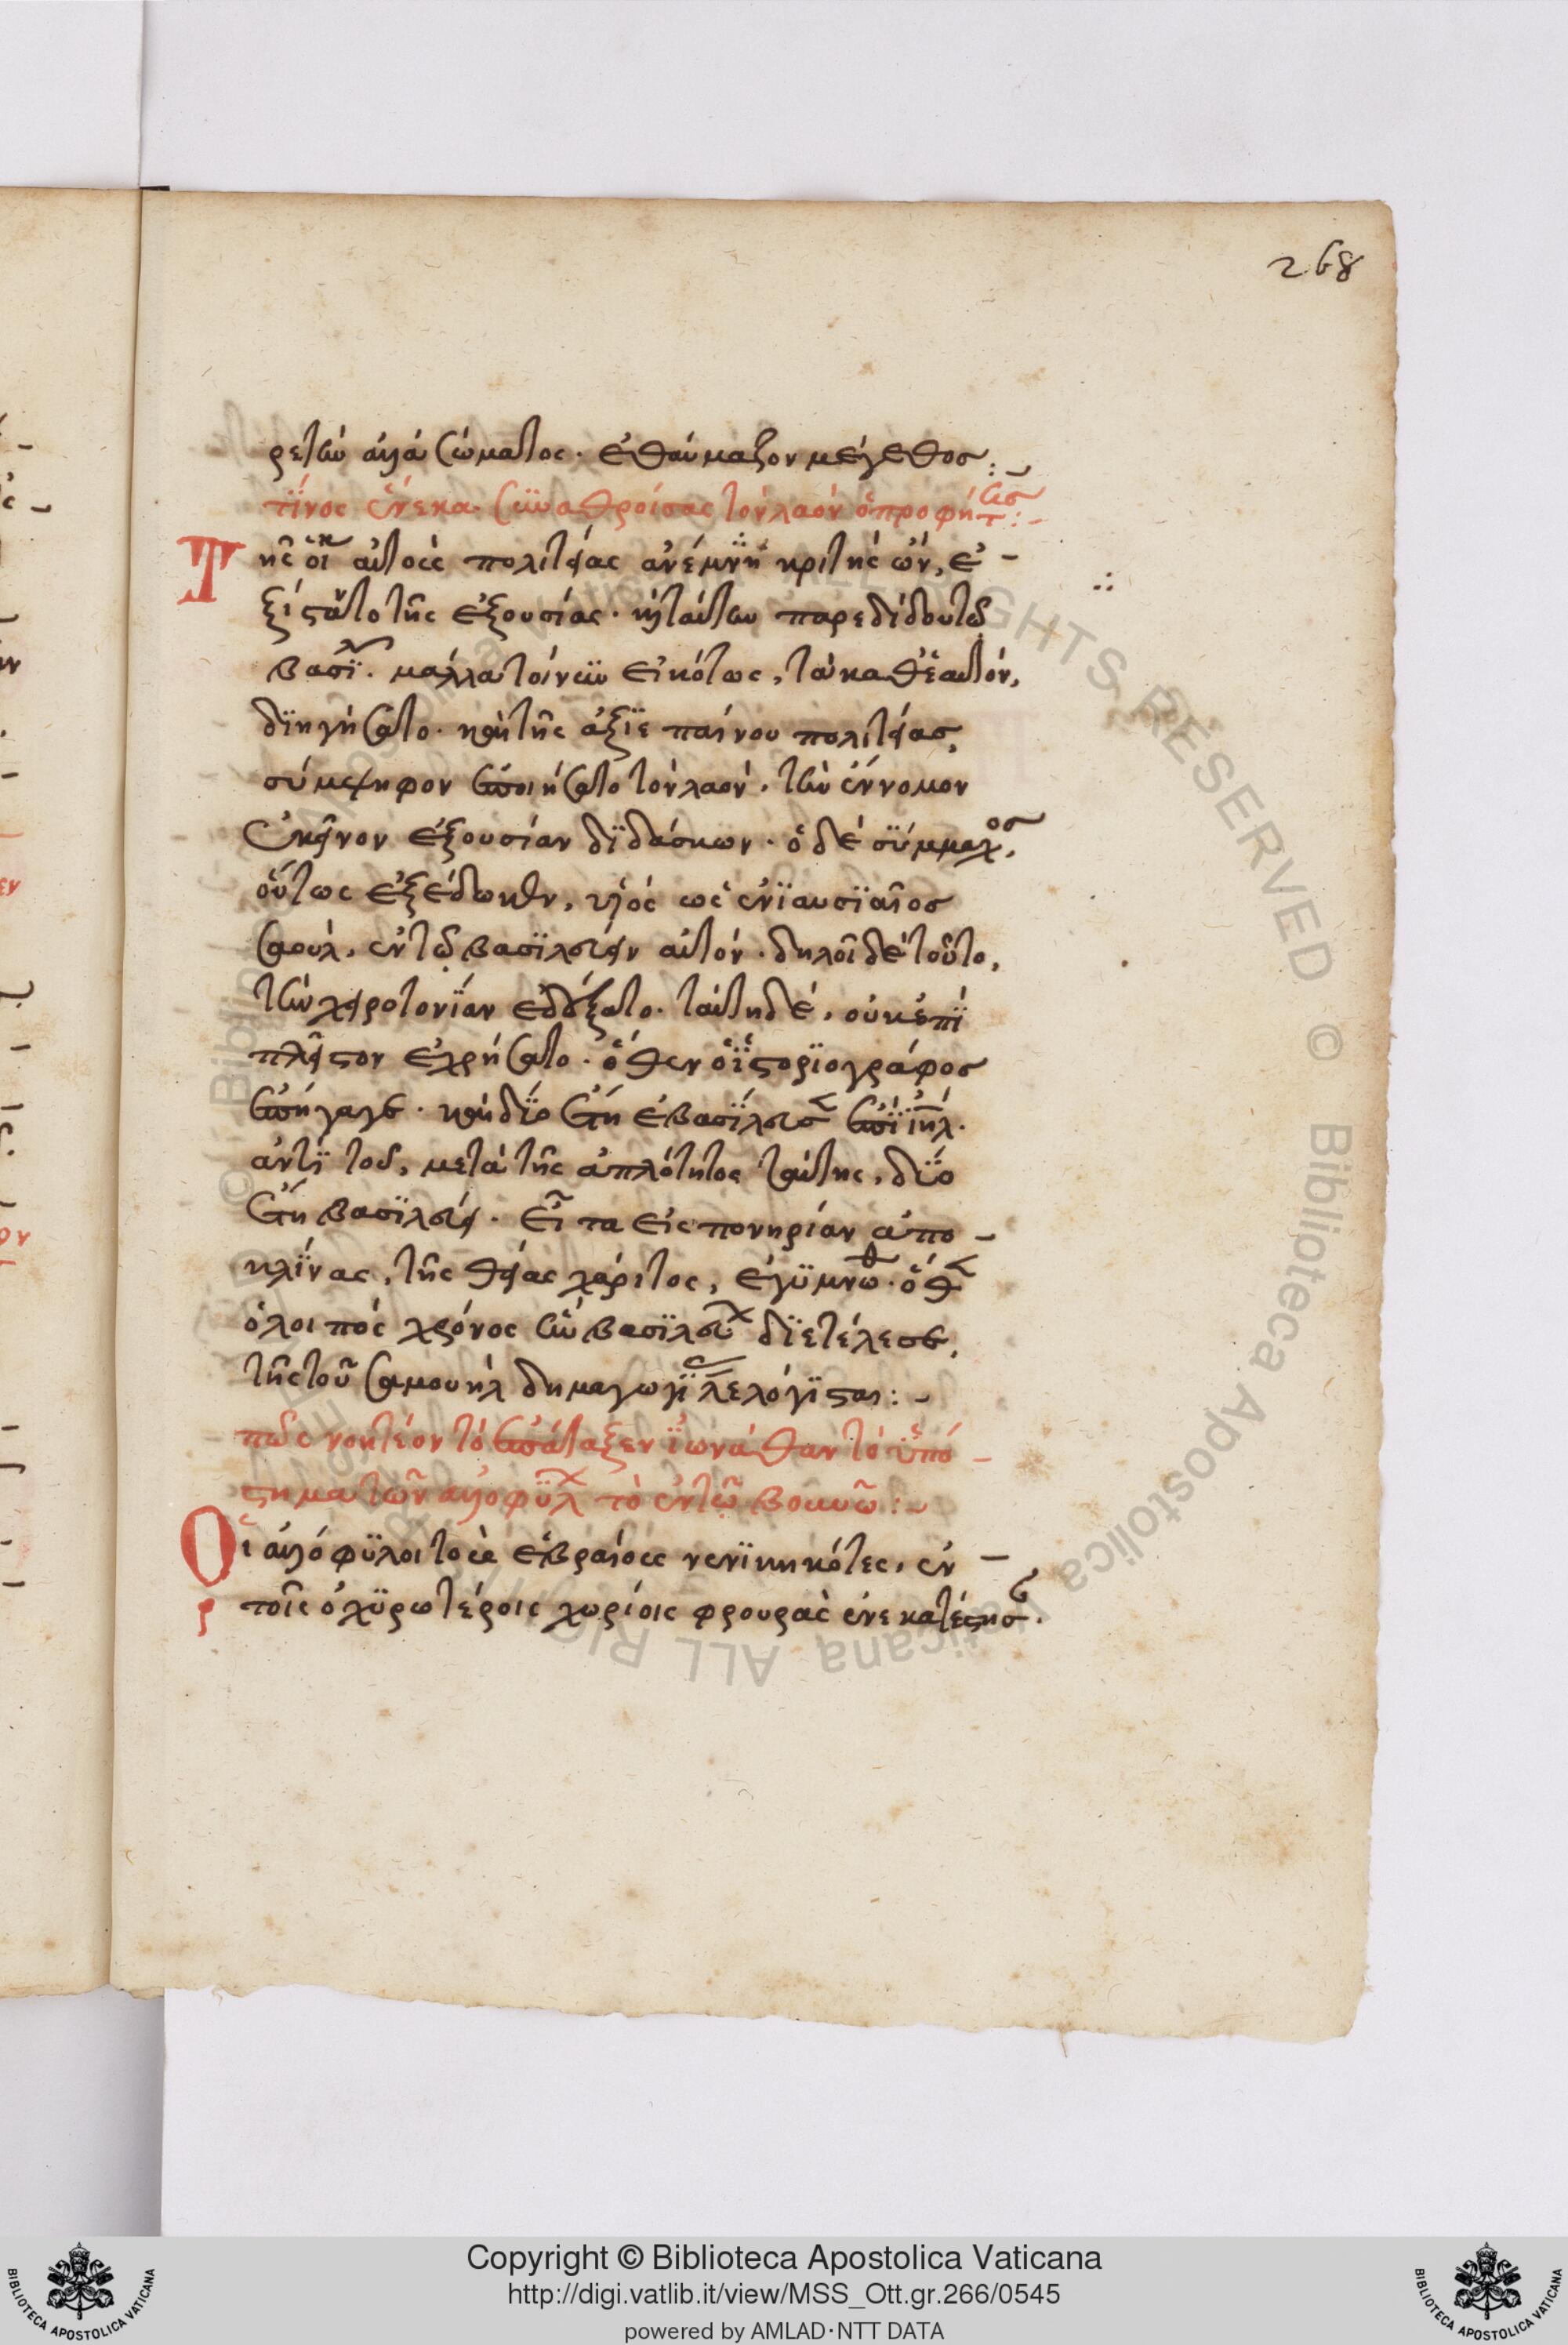 268
ρετὴν ἀλλὰ σώματος· ἐθαύμαζον μέγεθος:~
τΐνος ἕνεκα συναθροίσας τὸν λαὸν ὁ προφήτης:~
Τῆς οἰκ αὐτοὺς πολιτείας ἀνέμνη κριτὴς ὢν, ἐ-
ξίστατο τῆς ἐξουσίας· καὶ ταύτην παρεδίδου τῶ
βασϊ. μάλλα τοίνυν εἰκότως, τὰ καθ' ἑαυτὸν,
διηγήσατο· καὶ τῆς ἀξϊεπαίνου πολιτείας,
σύμψηφον ἐποιήσατο τὸν λαὸν. τὴν ἔννομον
ἐκεῖνον ἐξουσίαν δϊδάσκων· ὁ δὲ σύμμαχος,
οὕτως ἐξέδωκεν, υἱὸς ὡς ἐνϊαυσϊαῖος
σαουλ, ἐν τῶ βασϊλεύειν αὐτόν· δηλοῖ δὲ τοῦτο,
τὴν χειροτονΐαν ἐδέξατο· ταύτη δὲ, οὐκ ἐπϊ
πλεῖστον ἐχρήσατο· ὅθεν ὁ ϊστορϊογράφος
ἐπήγαγε· καὶ δύο ἔτη ἐβασΐλευσεν ἐπὶ ἰηλ.
ἀντὶ τοῦ, μετὰ τῆς ἁπλότητος ταύτης, δύο
ἔτη βασϊλεύει· εἶτα εἰς πονηρίαν ἀπο-
κλΐνας, τῆς θείας χάριτος, ἐγυμνώθ· ὅθεν
ὁ λοιπὸς χρόνος ὃν βασϊλευ δϊετέλεσε,
τῆς τοῦ σαμουὴλ δημαγωγϊ λελόγϊσται:~
πῶς νοητέον τὸ ἐπάταξεν ϊωνάθαν τὸ ὑπό-
στημα τῶν ἀλλοφύλ τὸ ἐν τῶ βουνῶ:~
Οἱ ἀλλόφϋλοι τοὺς ἑβραίους νενϊκηκότες, ἐν
τοῖς ὀχϋρωτέροις χωρίοις φρουρὰς ἐνεκατέστησ.
Copyright © Biblioteca Apostolica Vaticana
http://digi.vatlib.it/view/MSS_Ott.gr.266/0545
powered by AMLAD·NTT DATA
BIBLIOTECA APOSTOLICA VATICANA
BIBLIOTECA APOSTOLICA VATICANA